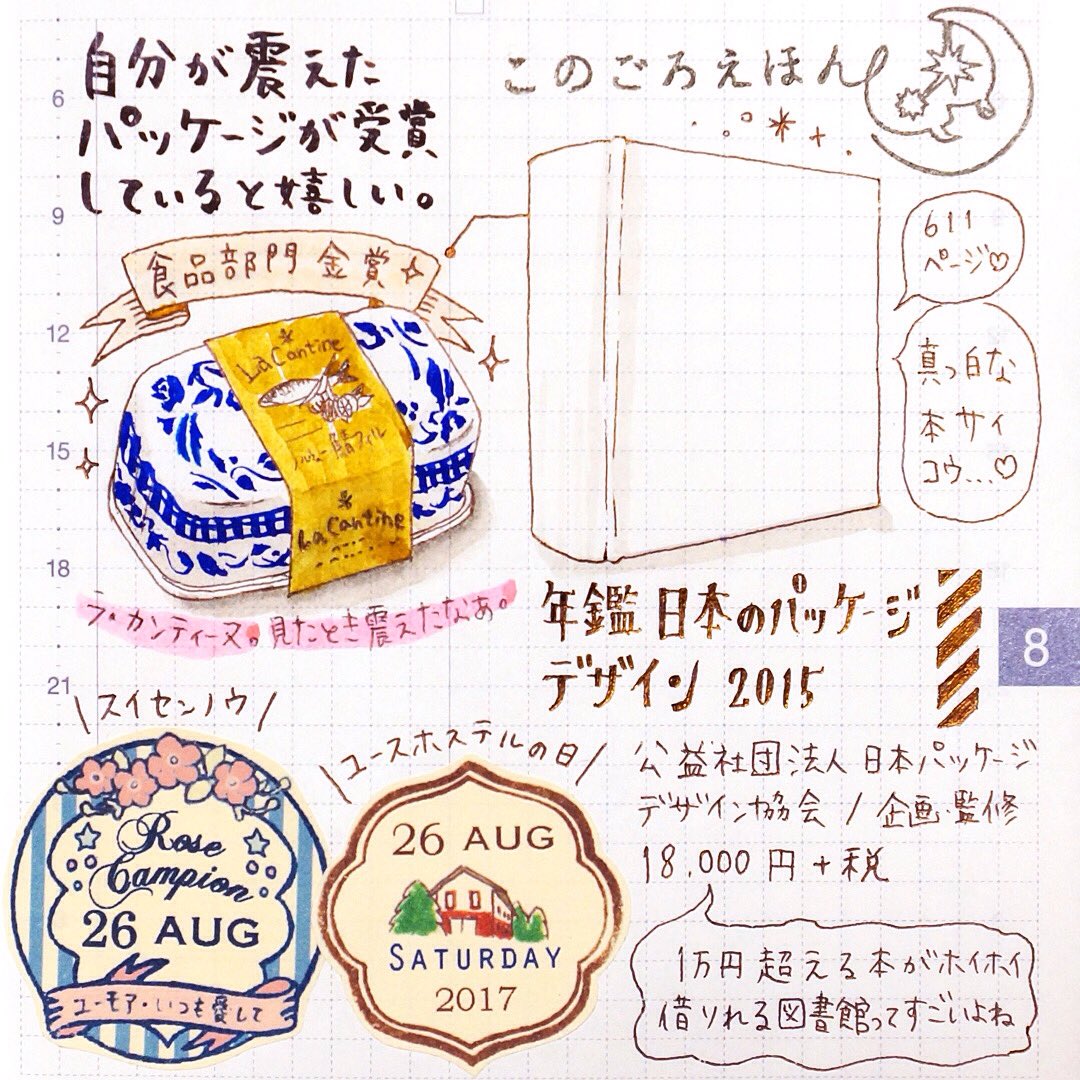 自分が震えた
パッケージが受賞
していると嬉しい。
このごろえほん
食品部門 金賞
611
ページ♡
真っ白な
本サイ
コウ...♡
La Cantine
鯖フィレ
La Cantine
ラ・カンティーヌ。見たとき震えたなぁ。
年鑑 日本のパッケージ
デザイン 2015
公益社団法人 日本パッケージ
デザイン協会 / 企画・監修
18.000円+税
1万円超える本がホイホイ
借りれる図書館ってすごいよね
\スイセンノウ/
Rose
Campion
26 AUG
ユーモア・いつも愛して
\ユースホステルの日/
26 AUG
SATURDAY
2017
6
9
12
15
18
21
8